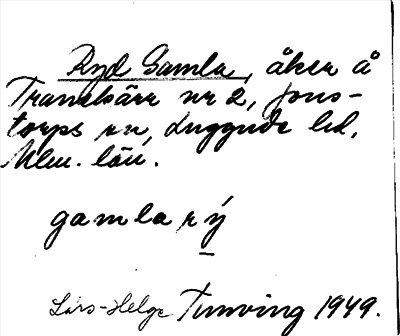 Ryd Gamla, åker å
Tranekärr nr 2, Jons-
torps sn, Luggude hd,
Mlm. län.
gamla rý
Lars-Helge Tunving 1949.